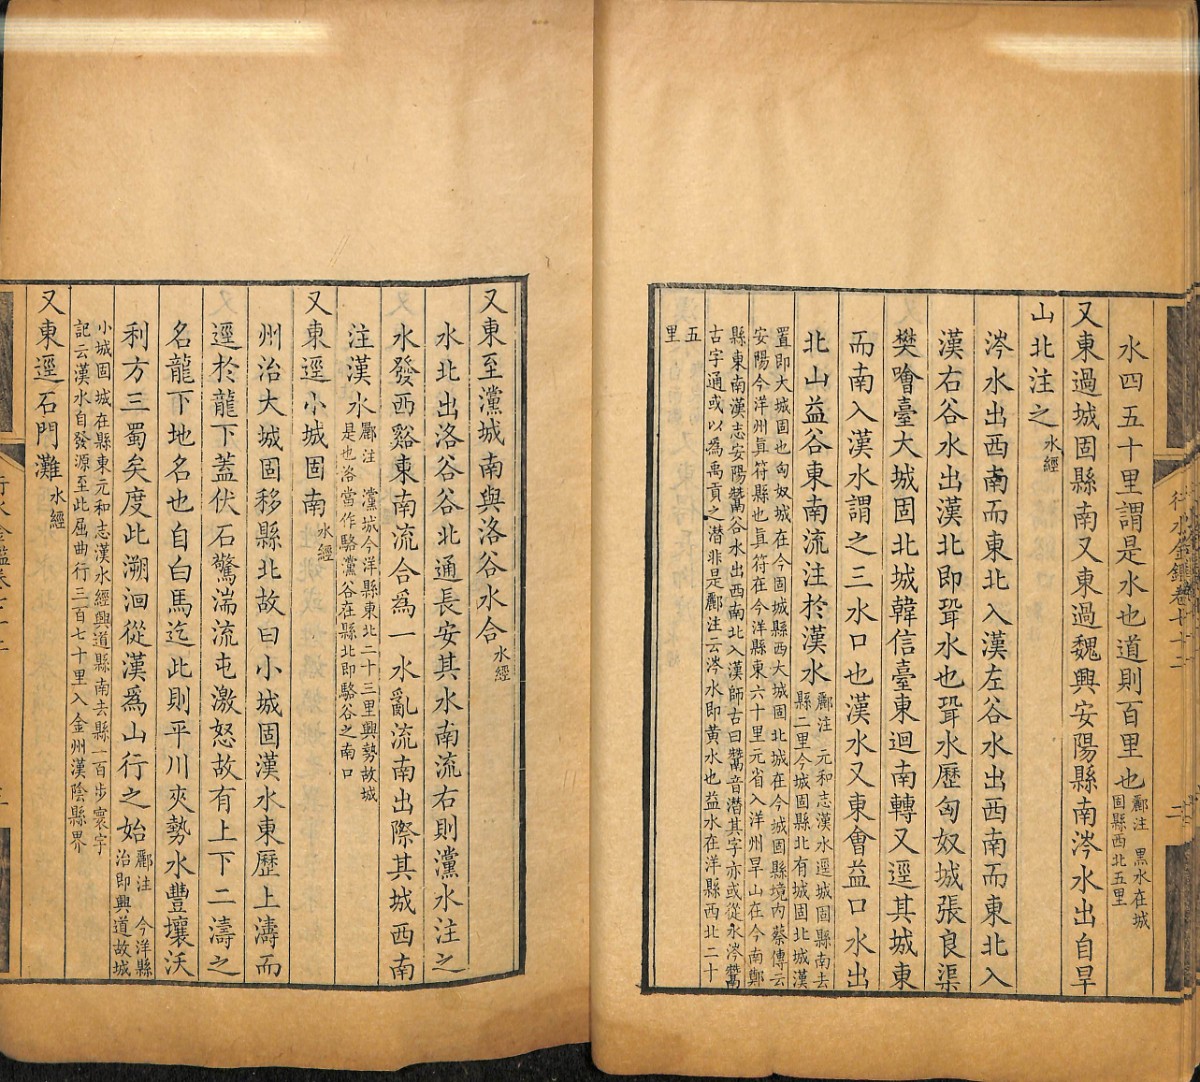 水四五十里謂是水也道則百里也酈注 黑水在城固縣西北五里
又東過城固縣南又東過魏興安陽縣南涔水出自旱
山北注之水經
涔水出西南而東北入漢左谷水出西南而東北入
漢右谷水出漢北即壻水也壻水歷匈奴城張良渠
樊噲臺大城固北城韓信臺東迴南轉又逕其城東
而南入漢水謂之三水口也漢水又東會益口水出
北山益谷東南流注於漢水酈注 元和志漢水逕城固縣南去縣二里今城固縣北有城固北城漢
置即大城固也匈奴城在今固城縣西大城固北城在今城固縣境內蔡傳云
安陽今洋州眞符縣也眞符在今洋縣東六十里元省入洋州旱山在今南鄭
縣東南漢志安陽鬵谷水出西南北入漢師古曰鬵音潛其字亦或從水涔鬵
古字通或以為禹貢之潛非是酈注云涔水即黃水也益水在洋縣西北二十
五里
行水金鑑卷七十二
二
又東至灙城南與洛谷水合水經
水北出洛谷谷北通長安其水南流右則灙水注之
水發西谿東南流合爲一水亂流南出際其城西南
注漢水酈注 灙城今洋縣東北二十三里興勢故城是也洛當作駱灙谷在縣北即駱谷之南口
又東逕小城固南水經
州治大城固移縣北故曰小城固漢水東歷上濤而
逕於龍下蓋伏石驚湍流屯激怒故有上下二濤之
名龍下地名也自白馬迄此則平川夾勢水豐壤沃
利方三蜀矣度此溯洄從漢爲山行之始酈注 今洋縣治即興道故城
小城固城在縣東元和志漢水經興道縣南去縣一百步寰宇
記云漢水自發源至此屈曲行三百七十里入金州漢陰縣界
又東逕石門灘水經